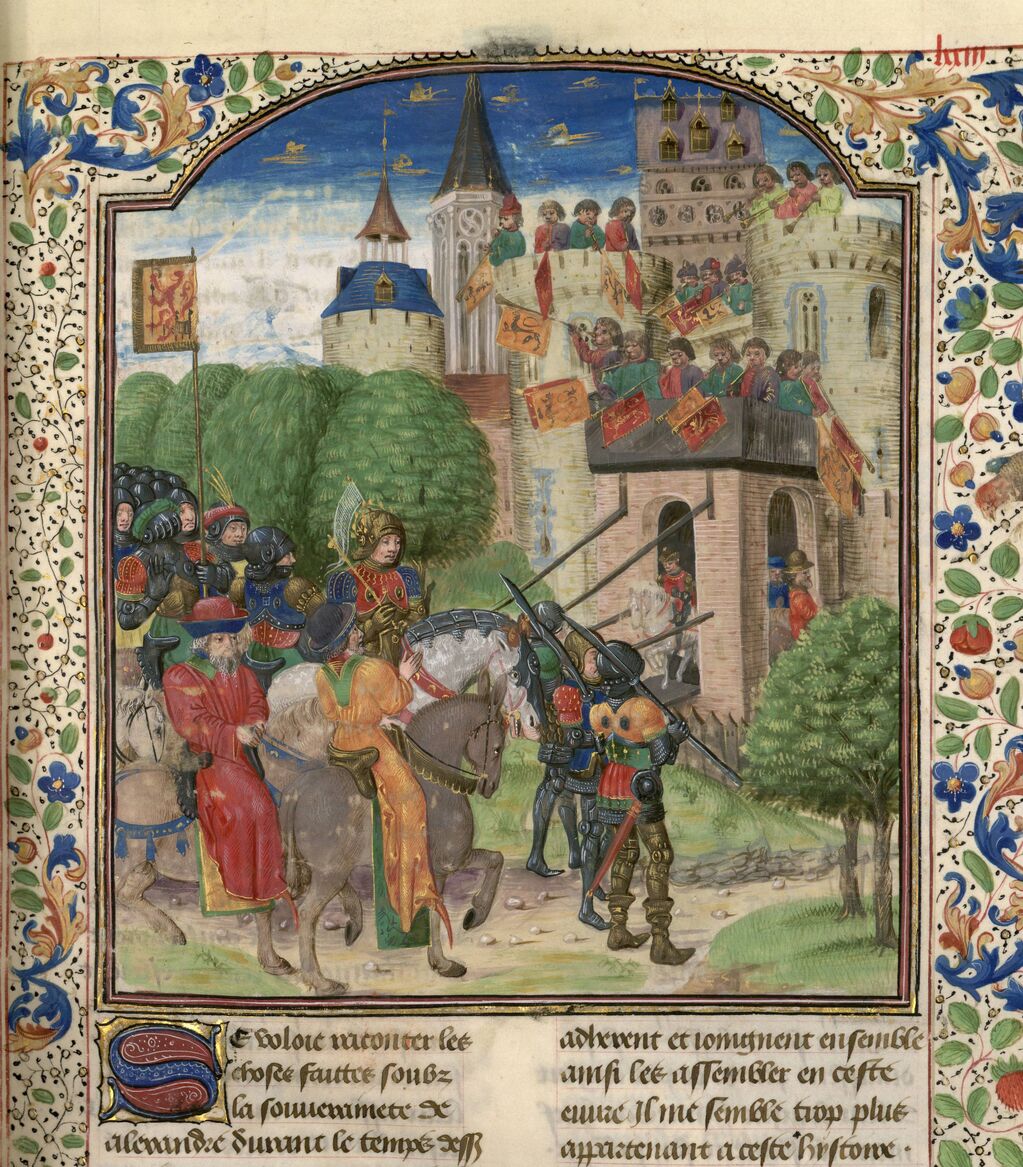 lxxiii
Se voloie raconter les
choses faittes soubz
la souverainete de
alexandre durant le temps dess
adherent et ioingnent ensemble
ainsi les assembler en ceste
euure Il me semble trop plus
appartenant a ceste hystoire .